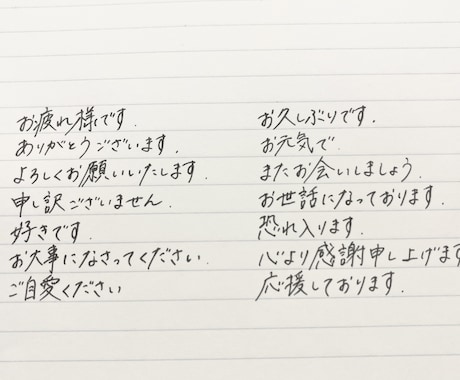 お疲れ様です.
ありがとうございます.
よろしくお願いいたします.
申し訳ございません.
好きです.
お大事になさってください.
ご自愛ください
お久しぶりです.
お元気で.
またお会いしましょう.
お世話になっております.
恐れ入ります.
心より感謝申し上げます
応援しております.